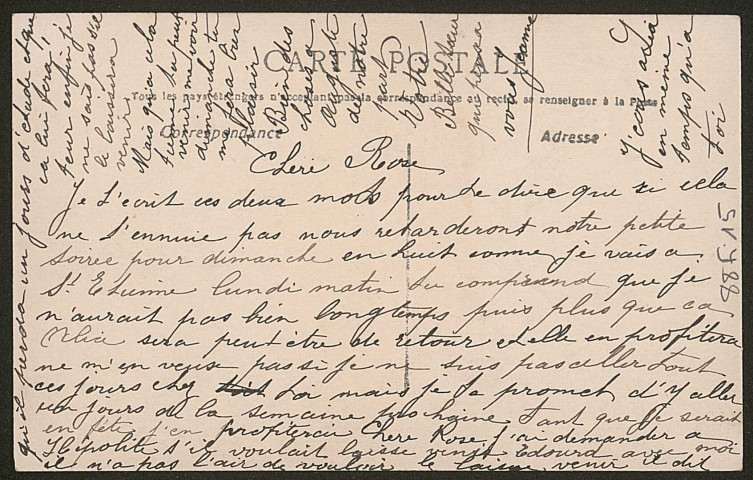 CARTE POSTALE
Tous les pays étrangers n'acceptant pas la correspondance au recto, se renseigner à la Poste
Correspondance
Adresse
Chère Rose
Je t'écrit ces deux mots pour te dire que si cela
ne t'ennuie pas nous retarderont notre petite
soirée pour dimanche en huit comme je vais a
St Etienne lundi matin tu comprend que je
n'aurait pas bien longtemps puis plus que ca
sera peut être de retour et elle en profitera
ne m'en veux pas si je ne suis pas aller tout
ces jours chez toi mais je te promet d'y aller
un jours de la semaine prochaine tant que je serait
en fête j'en profiterai Chère Rose j'ai demander a
Hipolite s'il voulait laisse venir Edourd avec moi
il n'a pas l'air de vouloir le laisser venir il dit
qu'il perdra un jours d'étude et que
ca lui fera
leur enfin je
ne sais pas s'il
le laissera
venir
Mais qu'a cela
tienne tu peux
venir me voir
demande tu
me fera bur
plaisir
Bien des
choses a
Auguste
de notre
part
Votre
Belle sœur
qui pensa
vous
Jeanne
J'écris a Léa
en même
temps qu'a
toi
88 V.515